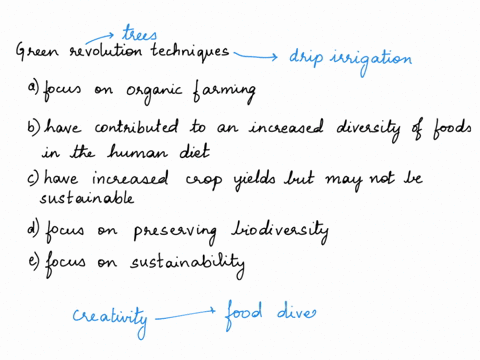 trees
Green revolution techniques drip irrigation
a) focus on organic farming
b) have contributed to an increased diversity of foods
in the human diet
c) have increased crop yields but may not be
sustainable
d) focus on preserving biodiversity
e) focus on sustainability
creativity food dive